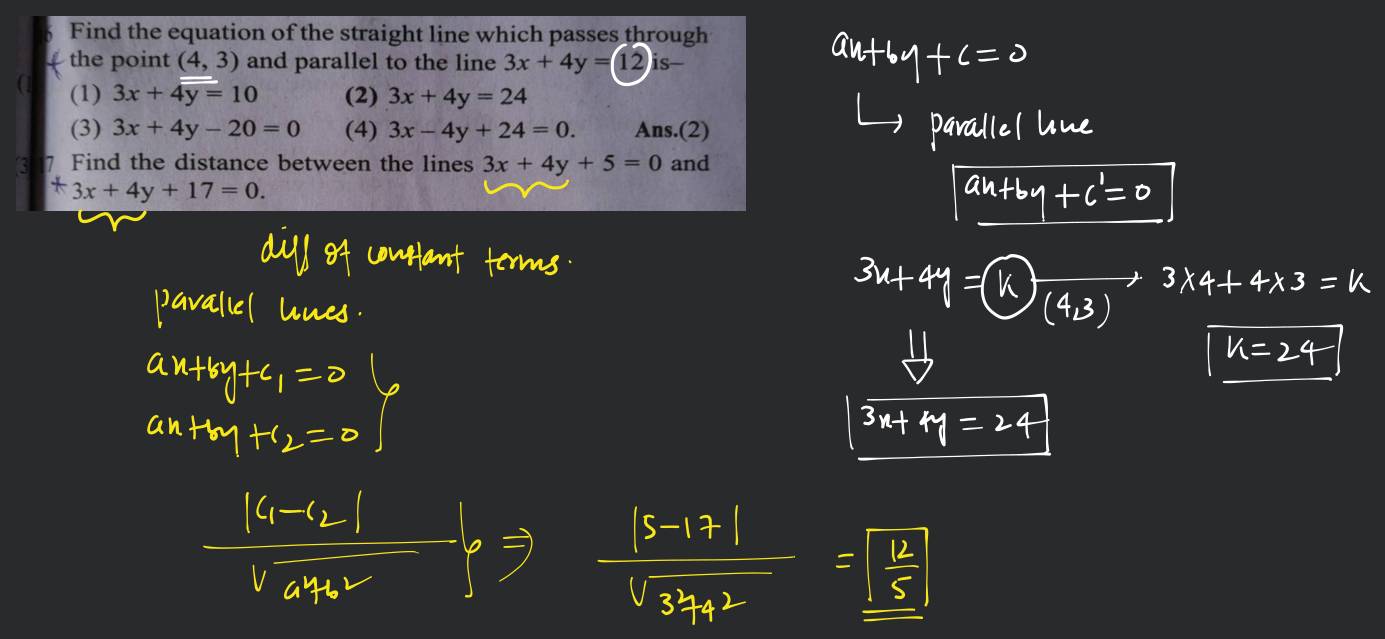 6 Find the equation of the straight line which passes through
the point (4, 3) and parallel to the line 3x + 4y = 12 is–
(1) 3x + 4y = 10 (2) 3x + 4y = 24
(3) 3x + 4y – 20 = 0 (4) 3x – 4y + 24 = 0. Ans.(2)
7 Find the distance between the lines 3x + 4y + 5 = 0 and
3x + 4y + 17 = 0.
diff of constant terms.
parallel lines.
ax+by+c₁=0
ax+by+c₂=0
|c₁-c₂|
√a²+b²
⇒
|5-17|
√3²+4²
= 12/5
ax+by+c=0
↳ parallel line
ax+by+c'=0
3x+4y = k (4,3) → 3×4+4×3 = k
k=24
⇓
3x+4y = 24